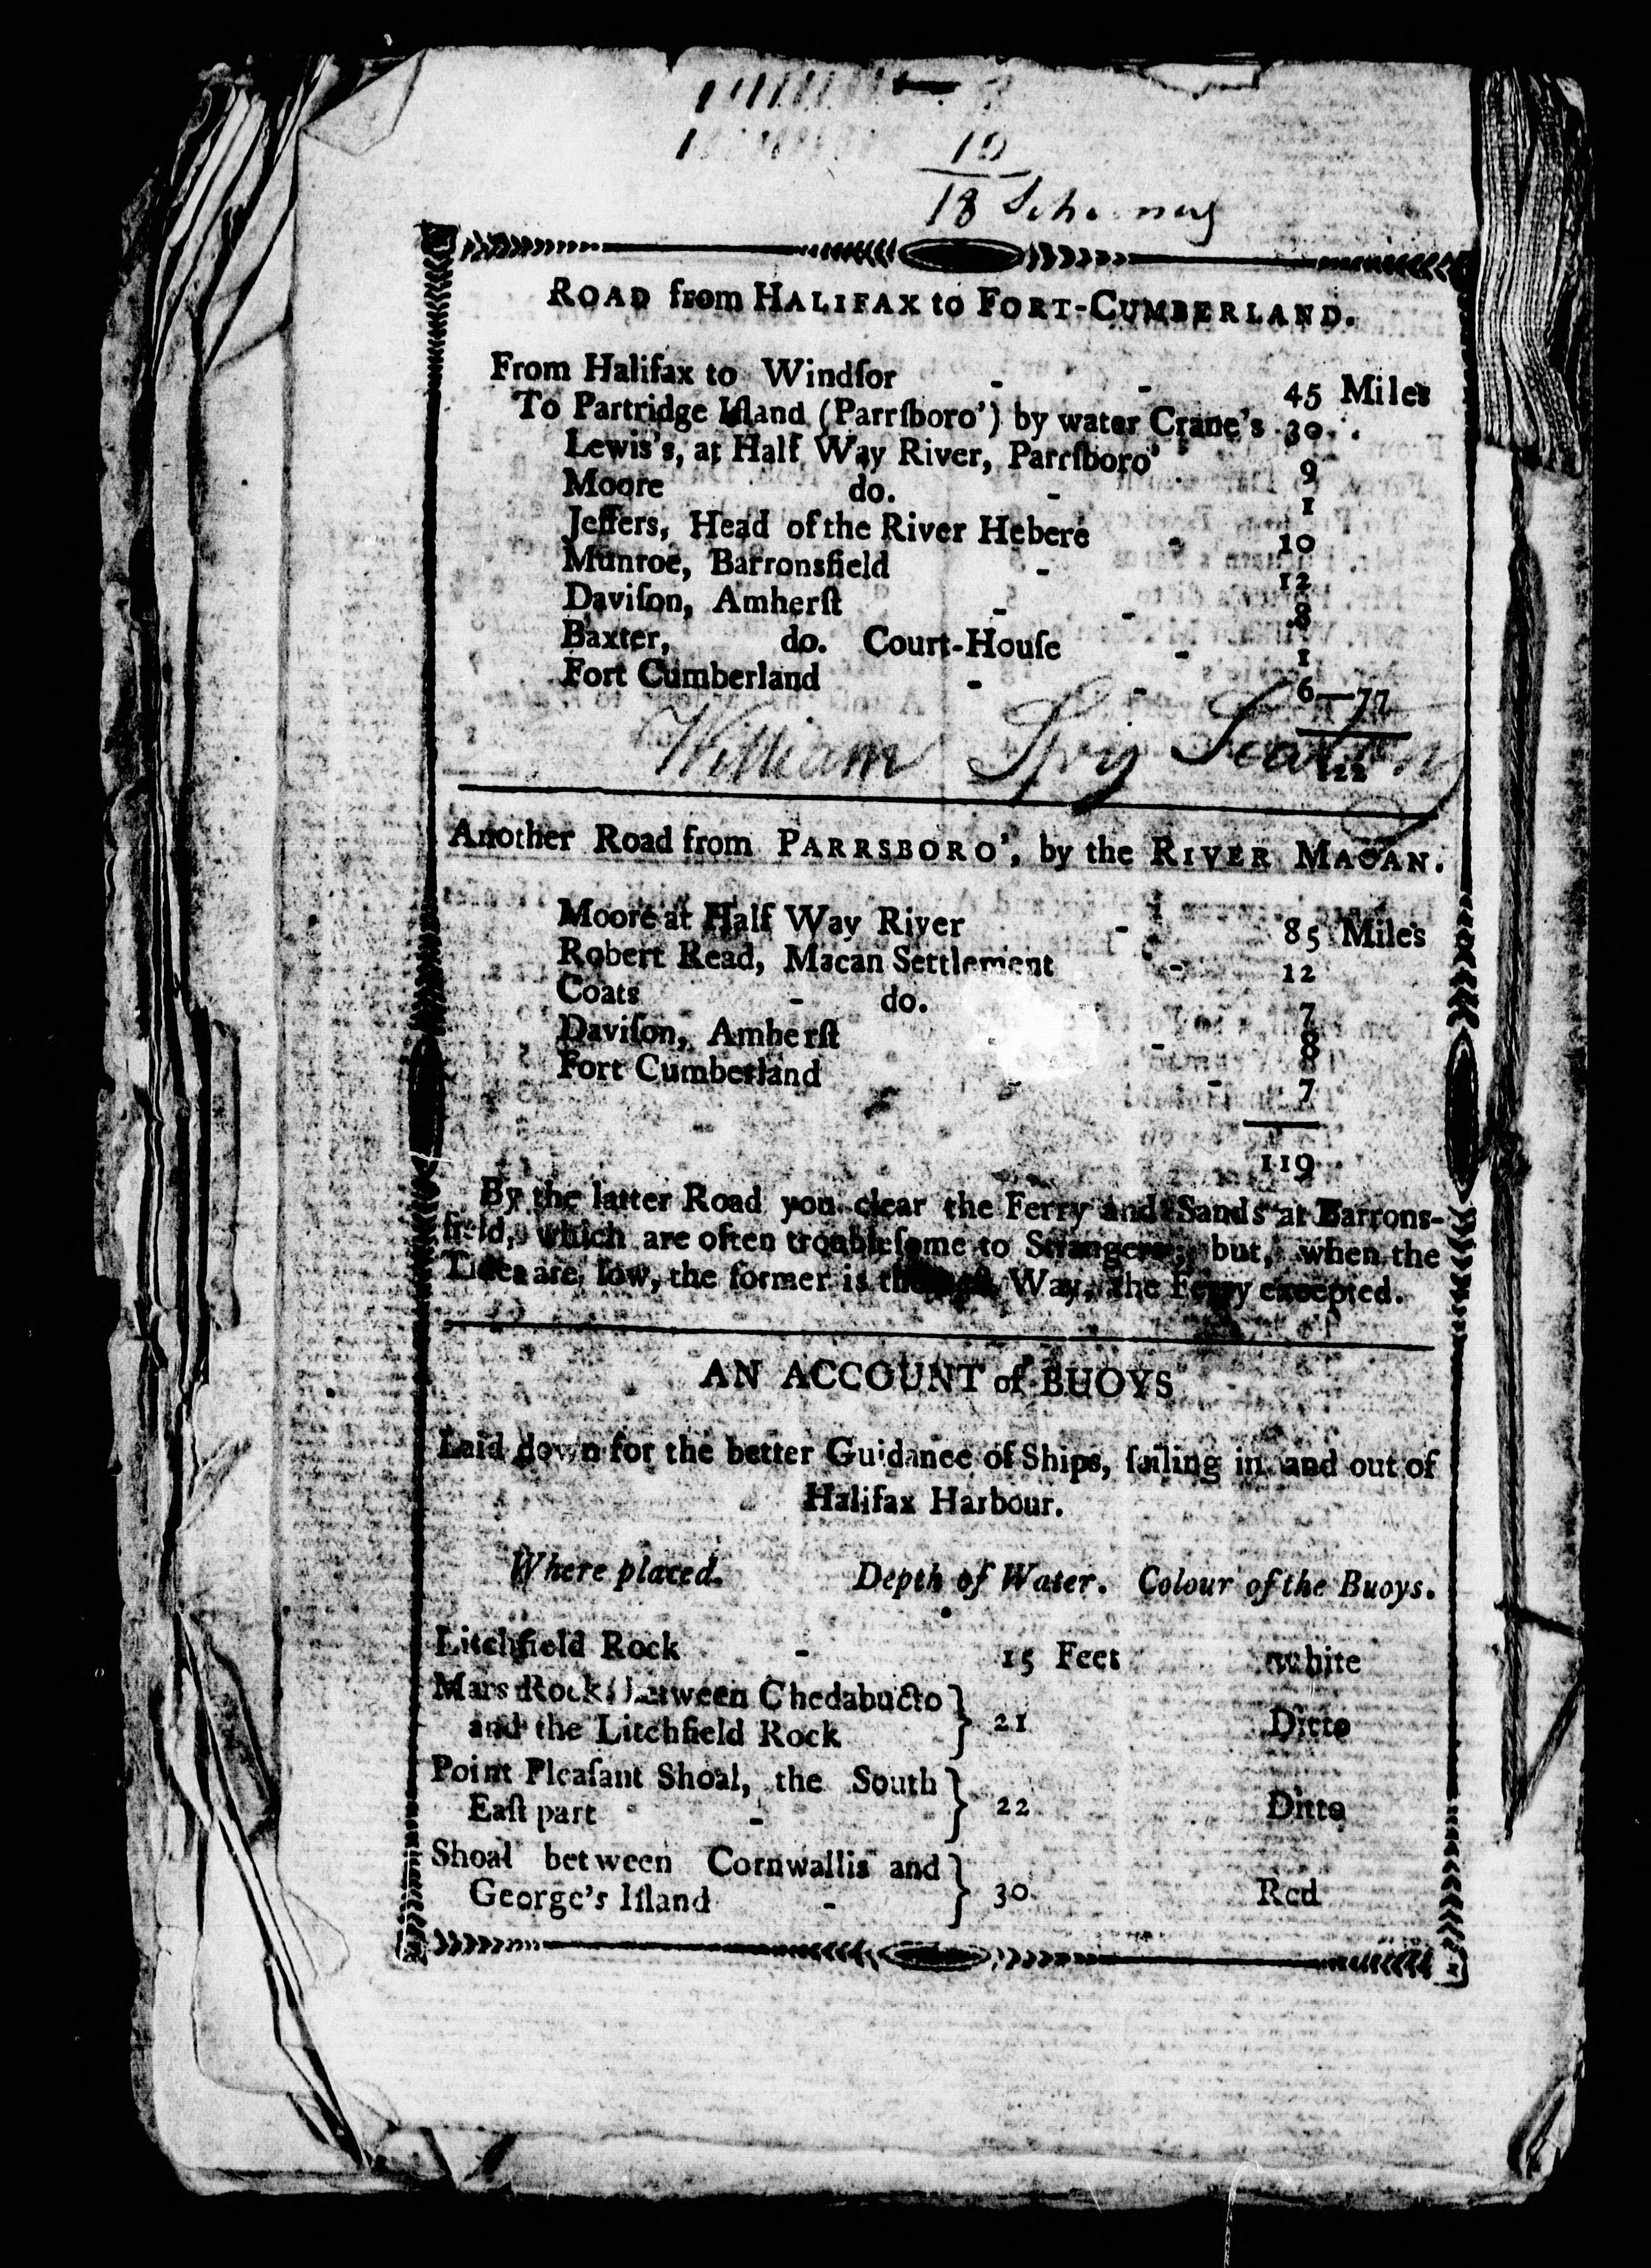 10
18
ROAD from HALIFAX to FORT-CUMBERLAND.
From Halifax to Windſor - - 45 Miles
To Partridge Iſland (Parrſboro') by water Crane's 30
Lewis's, at Half Way River, Parrſboro' 9
Moore do. - 1
Jeffers, Head of the River Hebere - 10
Munroe, Barronsfield - 12
Daviſon, Amherſt - - 8
Baxter, do. Court-Houſe - 1
Fort Cumberland - - 6—77
122
William
Another Road from PARRSBORO', by the RIVER MACAN.
Moore at Half Way River - 85 Miles
Robert Read, Macan Settlement - 12
Coats - do. 7
Daviſon, Amherſt - 8
Fort Cumberland - 7
119
By the latter Road you clear the Ferry and Sands at Barrons-
field, which are often troubleſome to Strangers; but, when the
Tides are low, the former is the Way, the Ferry excepted.
AN ACCOUNT of BUOYS
Laid down for the better Guidance of Ships, ſailing in and out of
Halifax Harbour.
Where placed. Depth of Water. Colour of the Buoys.
Litchfield Rock - 15 Feet white
Mars Rock between Chedabucto
and the Litchfield Rock } 21 Ditto
Point Pleaſant Shoal, the South
Eaſt part - } 22 Ditto
Shoal between Cornwallis and
George's Iſland - } 30 Red